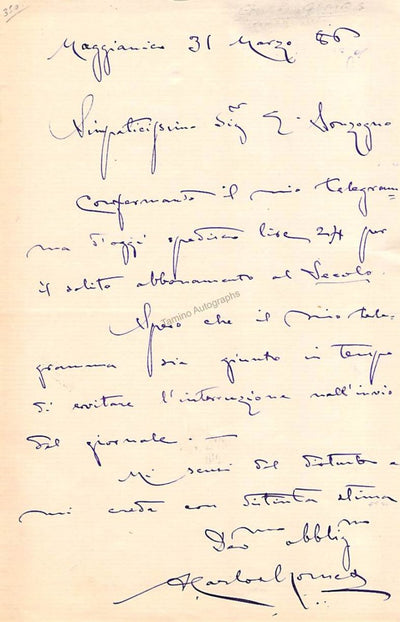 350
Maggianico 31 Marzo 86
Simpaticissimo Sigr E. Sonzogno
Confermando il mio telegram=
ma d'oggi spedisco lire 24 per
il solito abbonamento al Secolo.
Spero che il mio tele-
gramma sia giunto in tempo
di evitare l'interruzione nell'invio
del giornale. —
Mi scusi del disturbo e
mi creda con distinta stima
Devmo obbligmo
ACarlos Gomes
Tamino Autographs